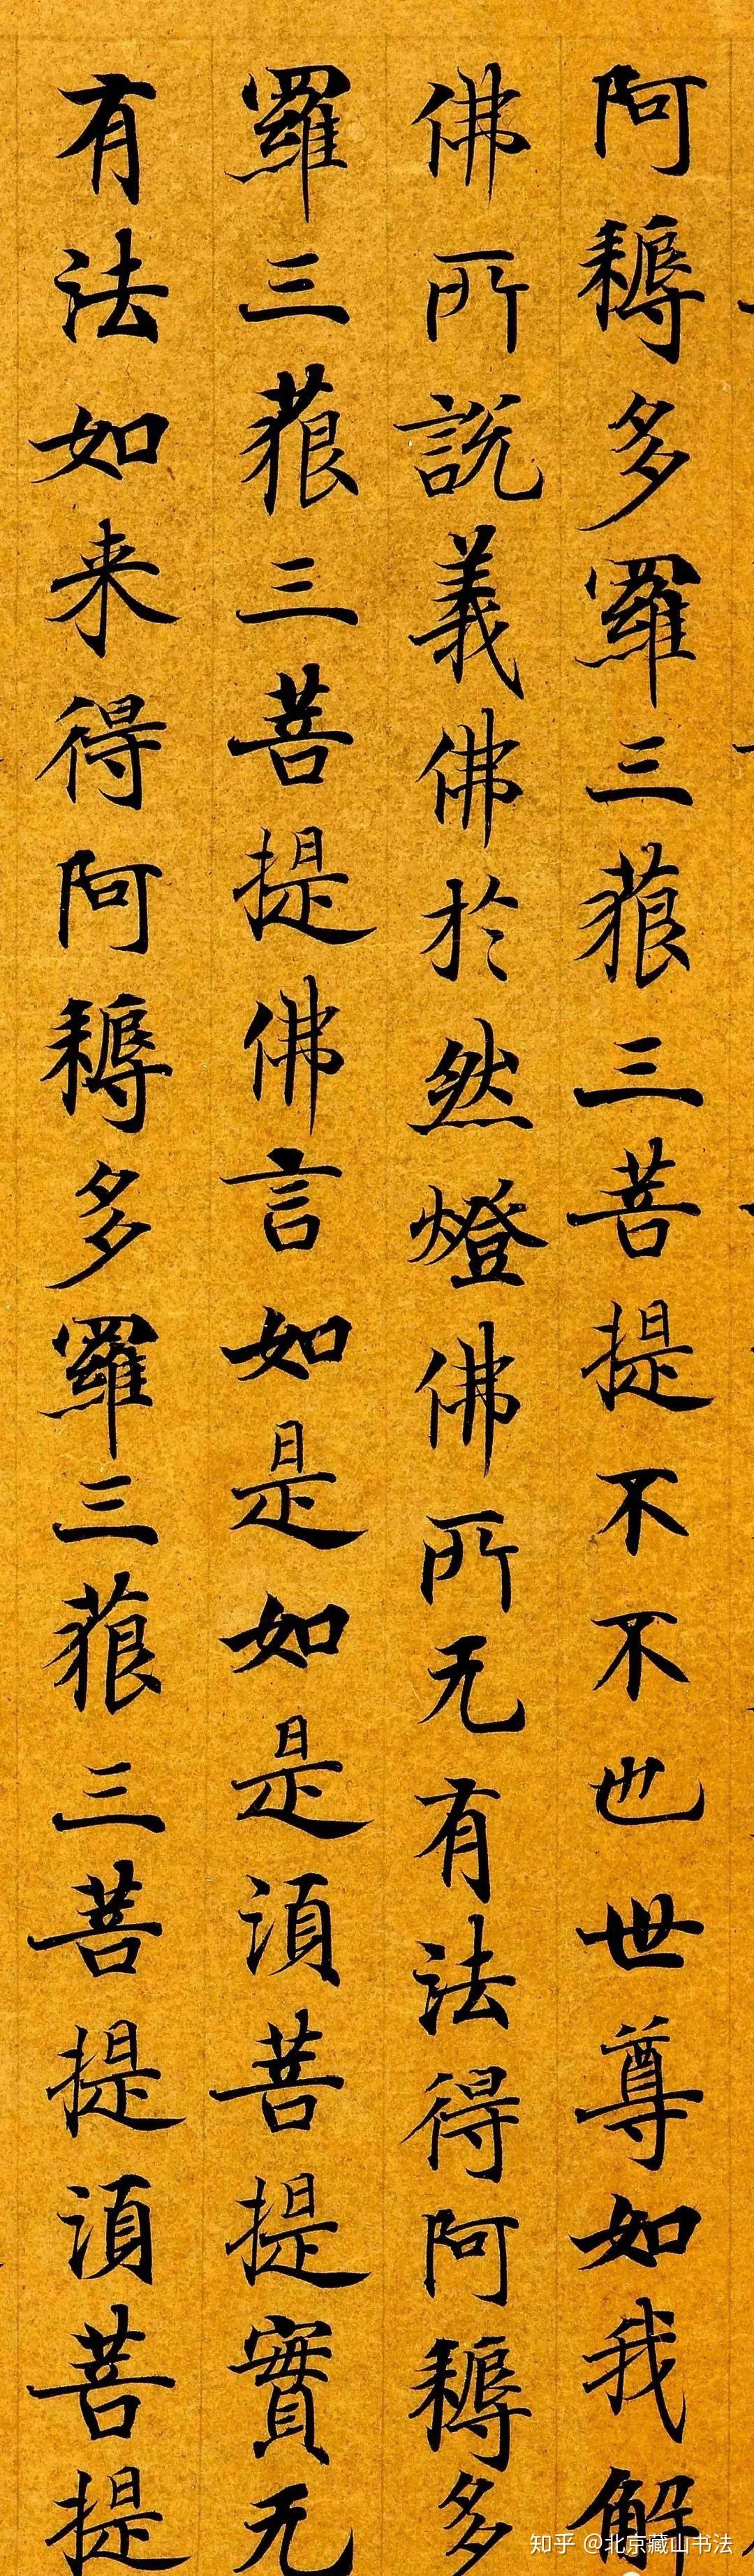 阿耨多羅三藐三菩提不不也世尊如我解
佛所說義佛於然燈佛所无有法得阿耨多
羅三藐三菩提佛言如是如是須菩提實无
有法如来得阿耨多羅三藐三菩提須菩提
知乎 @北京藏山书法